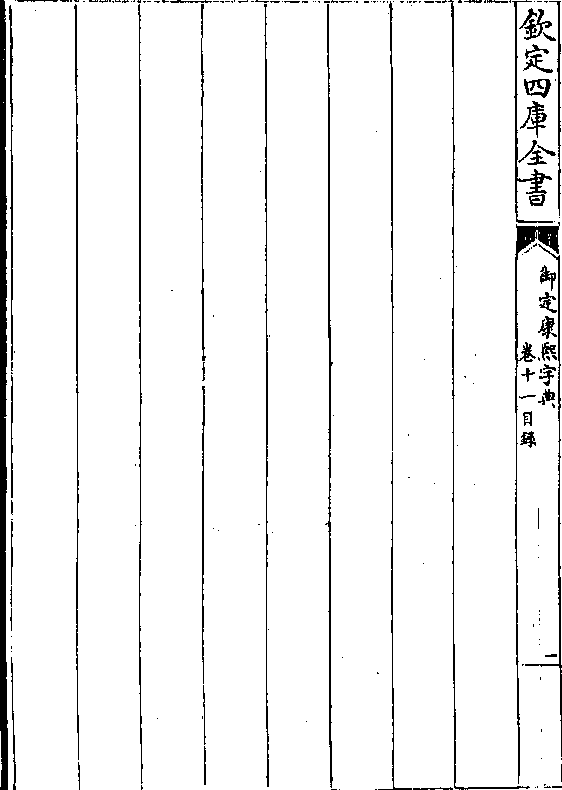 欽定四庫全書
御定康熙字典
卷十一目録
一